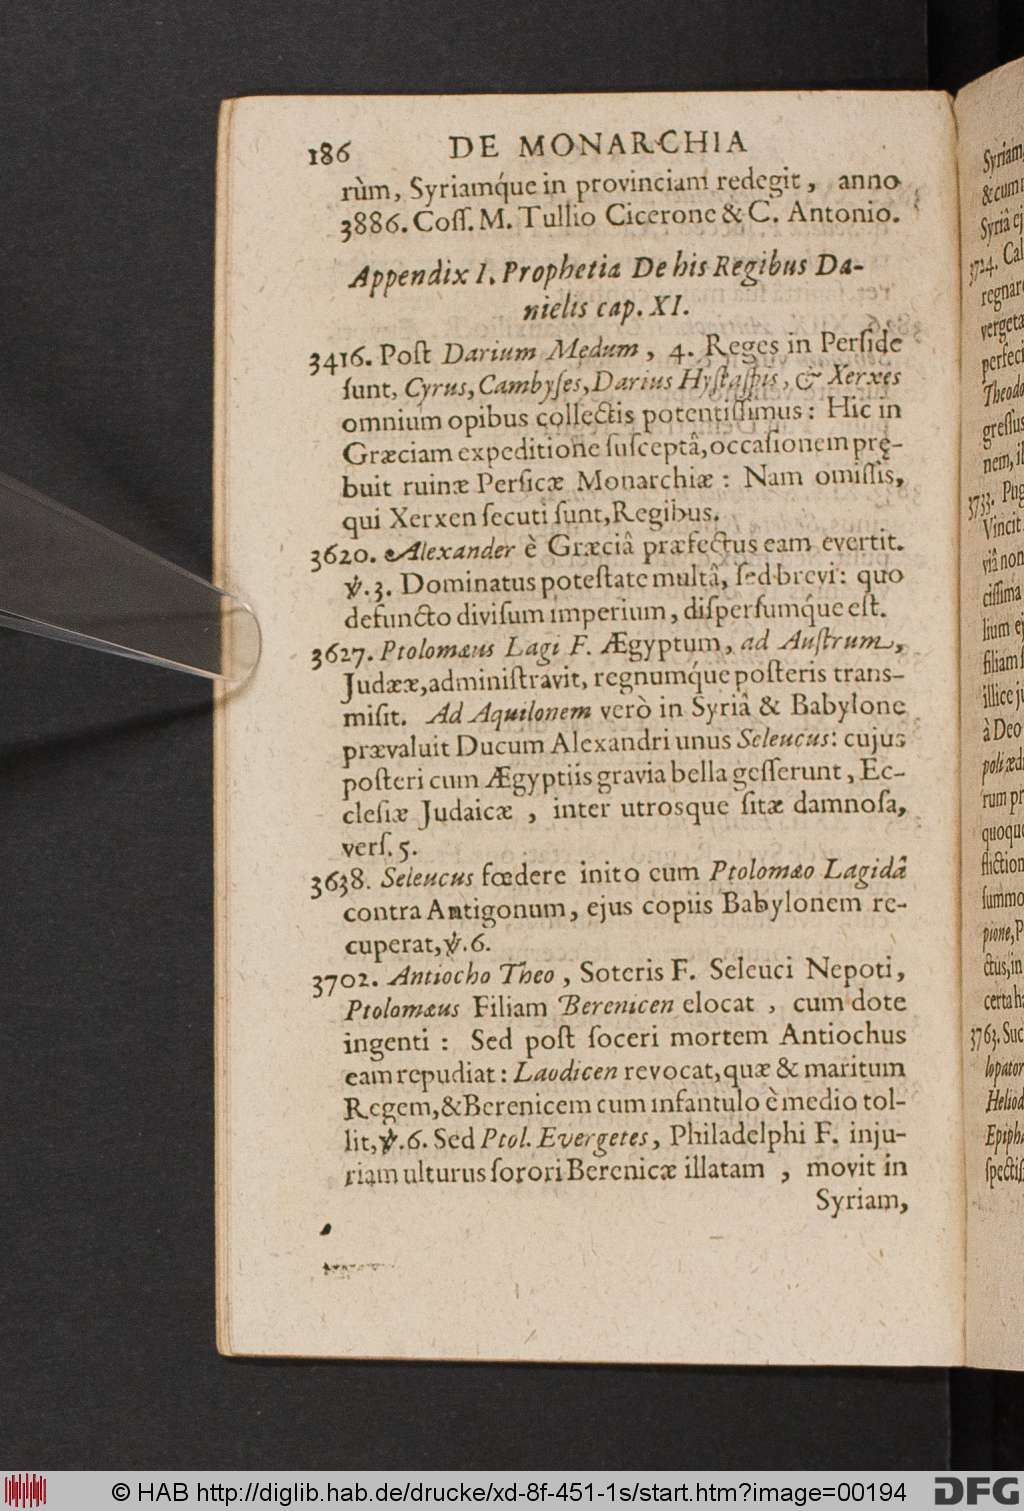 186 DE MONARCHIA
rùm, Syriamq́ue in provinciam redegit, anno
3886. Coſſ. M. Tullio Cicerone & C. Antonio.
Appendix I. Prophetia De his Regibus Da-
nielis cap. XI.
3416. Poſt Darium Medum, 4. Reges in Perſide
ſunt, Cyrus, Cambyſes, Darius Hyſtaſpis, & Xerxes
omnium opibus collectis potentiſſimus: Hic in
Græciam expeditione ſuſceptâ, occaſionem prę-
buit ruinæ Perſicæ Monarchiæ: Nam omiſſis,
qui Xerxen ſecuti ſunt, Regibus.
3620. Alexander è Græciâ præfectus eam evertit.
ꝟ.3. Dominatus poteſtate multâ, ſed brevi: quo
defuncto diviſum imperium, diſperſumq́ue eſt.
3627. Ptolomæus Lagi F. Ægyptum, ad Auſtrum,
Judææ, adminiſtravit, regnumq́ue poſteris trans-
miſit. Ad Aquilonem verò in Syriâ & Babylone
prævaluit Ducum Alexandri unus Seleucus: cujus
poſteri cum Ægyptiis gravia bella geſſerunt, Ec-
cleſiæ Judaicæ, inter utrosque ſitæ damnoſa,
verſ. 5.
3638. Seleucus fœdere inito cum Ptolomæo Lagidâ
contra Antigonum, ejus copiis Babylonem re-
cuperat, ꝟ.6.
3702. Antiocho Theo, Soteris F. Seleuci Nepoti,
Ptolomæus Filiam Berenicen elocat, cum dote
ingenti: Sed poſt ſoceri mortem Antiochus
eam repudiat: Laodicen revocat, quæ & maritum
Regem, & Berenicem cum infantulo è medio tol-
lit, ꝟ.6. Sed Ptol. Evergetes, Philadelphi F. inju-
riam ulturus ſorori Berenicæ illatam, movit in
Syriam,
Syriam,
& cum
Syriâ ej
3724. Cal
regnar
vergetæ
perfeci
Theodo
greſſus
nem, il
3733. Pug
Vincit
viâ non
ciſſima
lium ej
filiam ſ
illice ju
à Deo
poli æd
rum pr
quoque
flictior
ſummo
pione, P
ctus, in
certa h
3763. Suc
lopator
Heliod
Epiph
ſpectiſ
© HAB http://diglib.hab.de/drucke/xd-8f-451-1s/start.htm?image=00194
DFG